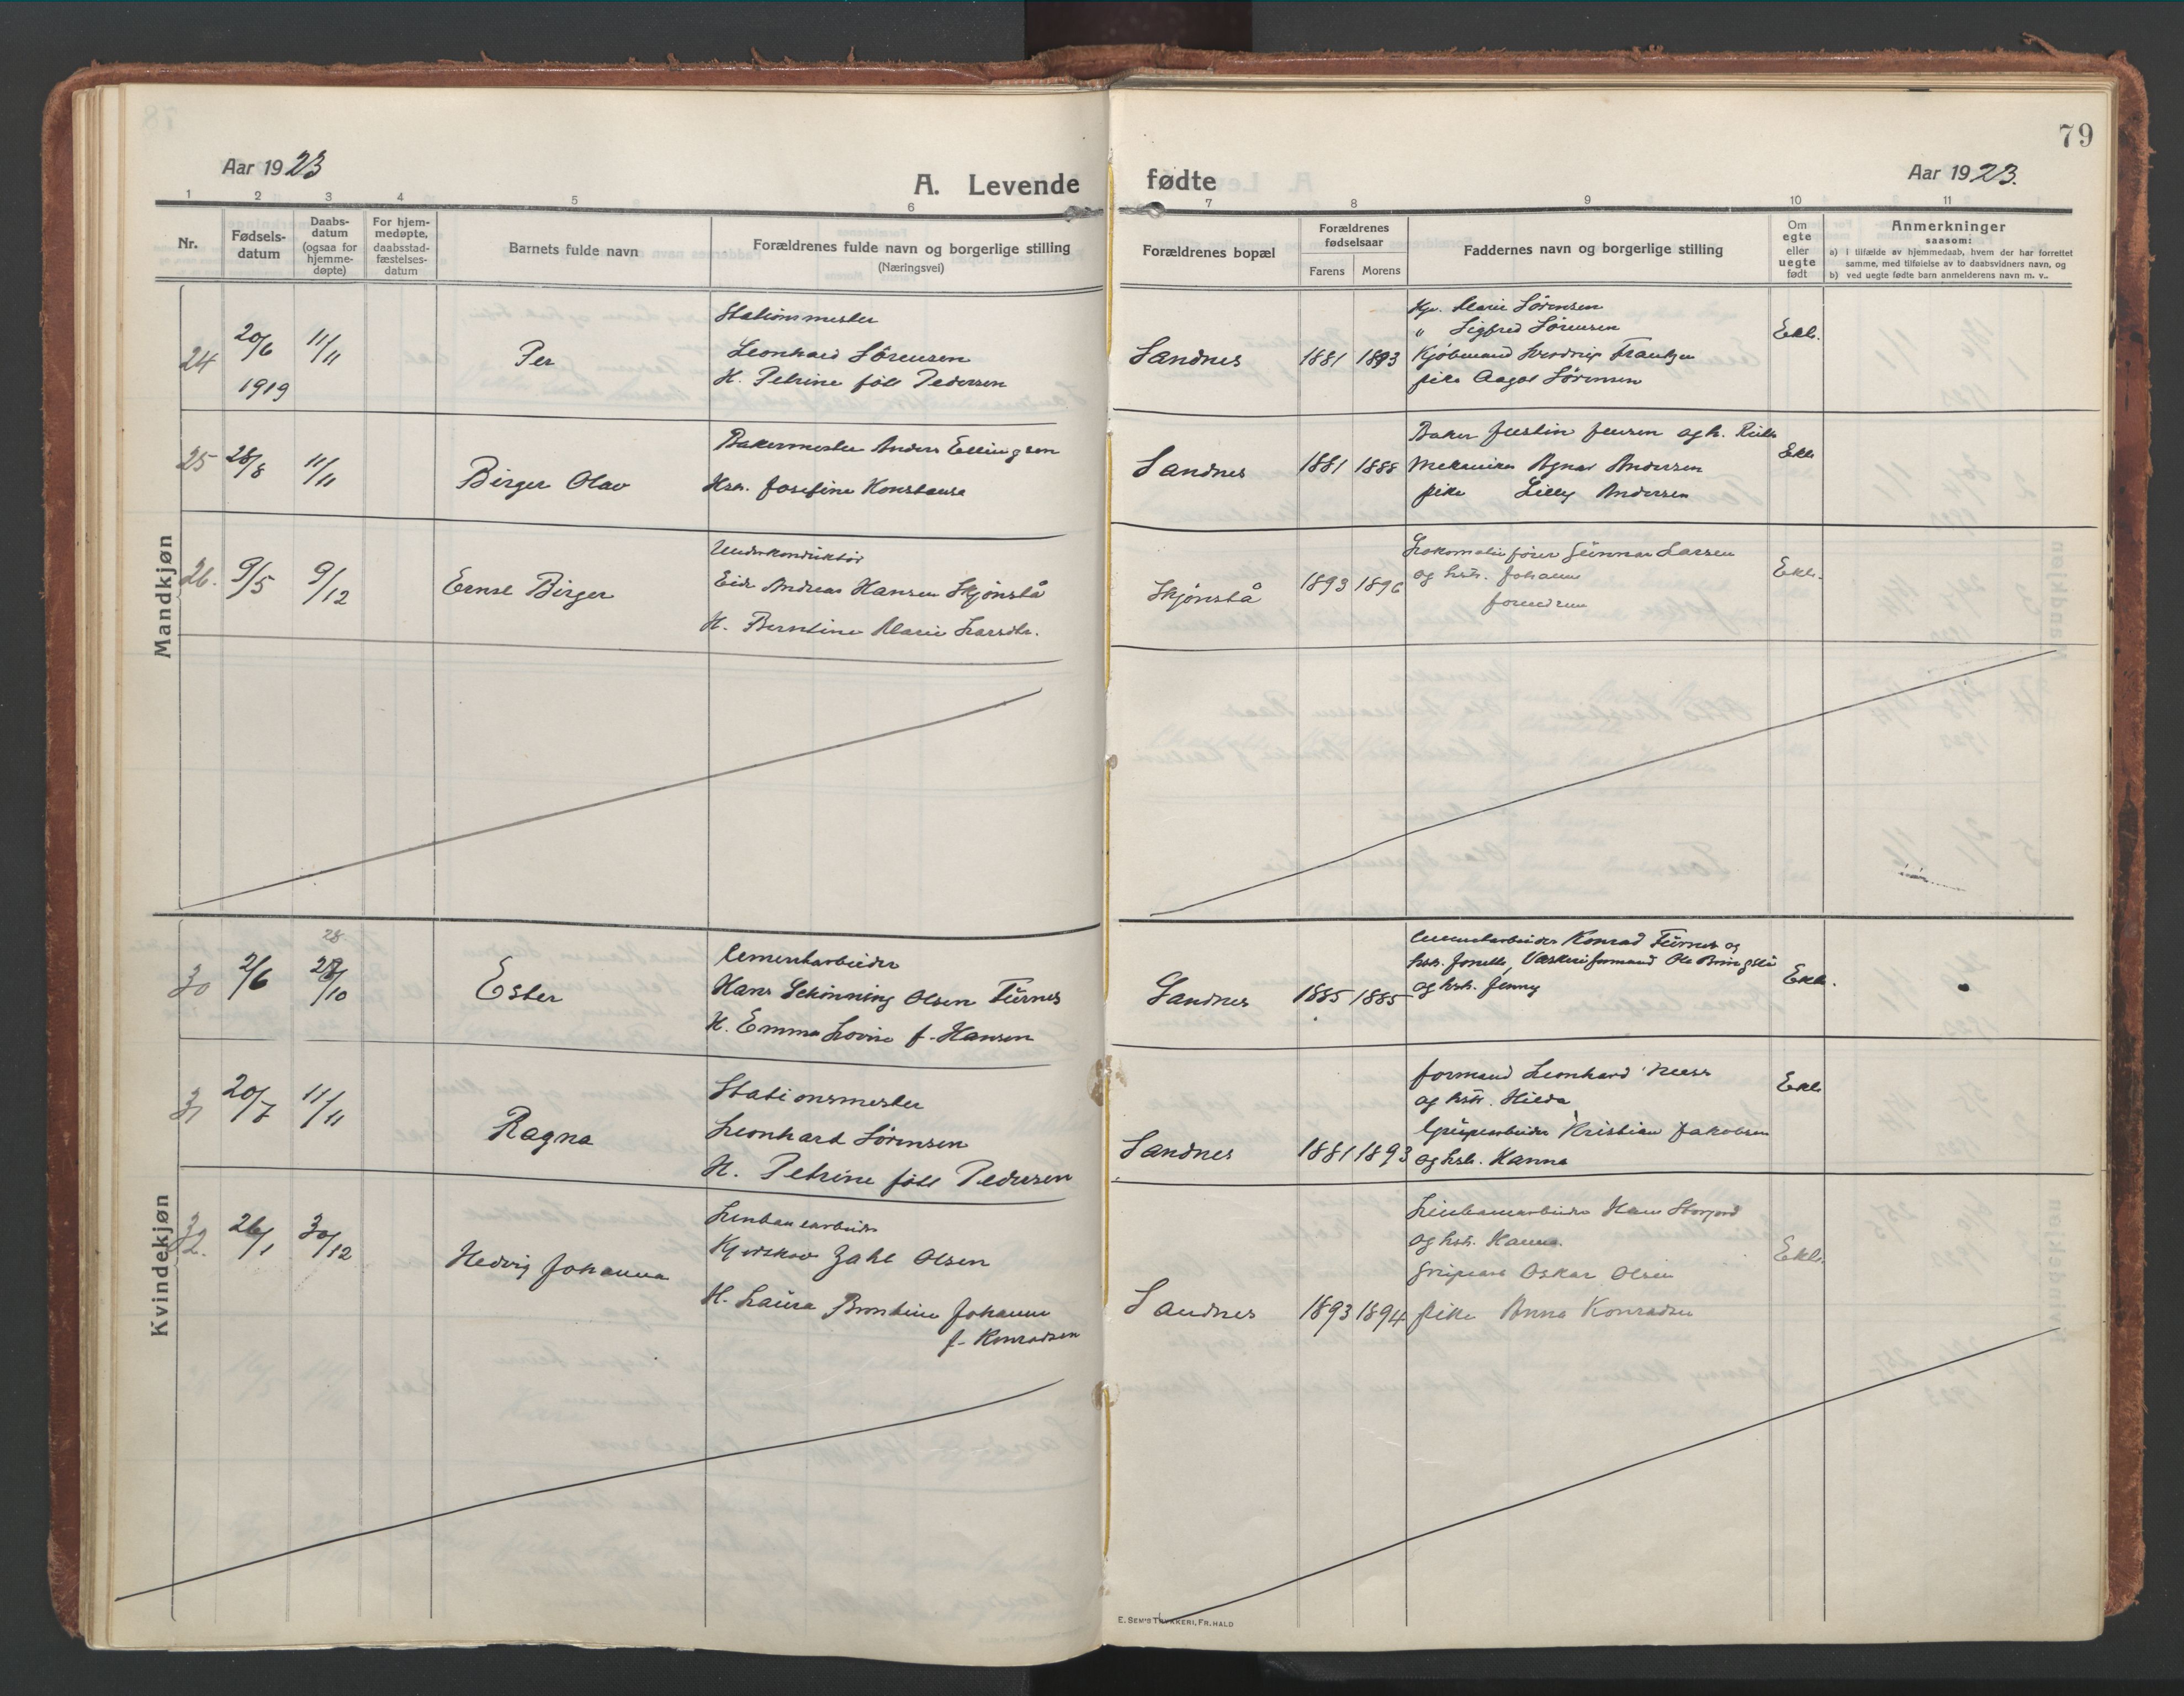 79
Aar 1923
A. Levende
fødte
Aar 1923.
1 2 3 4 5 6 7 8 9 10 11
Nr.
Fødsels-
datum
Daabs-
datum
(ogsaa for
hjemme-
døpte)
For hjem-
medøpte,
daabsstad-
fæstelses-
datum
Barnets fulde navn
Forældrenes fulde navn og borgerlige stilling
(Næringsvei)
Forældrenes bopæl
Forældrenes
fødselsaar
Farens Morens
Faddernes navn og borgerlige stilling
Om
egte
eller
uegte
født
Anmerkninger
saasom:
a) i tilfælde av hjemmedaab, hvem der har forrettet
samme, med tilføielse av to daabsvidners navn, og
b) ved uegte fødte barn anmelderens navn m. v..
Mandkjøn
24 20/6 1919 11/11 Per
Stationsmester
Leonhard Sörensen
H. Petrine föd Pedersen
Sandnes 1881 1893
Marie Sörensen
" Sigfred Sörensen
Kjöbmand Frantzen
pike Aagot Sörensen
Ekte.
25 28/8 11/11 Birger Olav
Bakermester Anders Ellingsen
Hstr. Josefine Konstanse
Sandnes 1881 1888
Baker Justin Jensen og h.
Mekaniker Agnar Andersen
pike Lilly Andersen
Ekte
26. 9/5 9/12 Ernst Birger
Underkonduktör
Andreas Hansen Skjönstå
H. Berntine Marie Larsdtr.
Skjönstå 1893 1896
Lokomotivförer Gunnar Larsen
og hstr. Johann
foreldrene
Ekte.
Kvindekjøn
30 2/6 28/10 28 Ester
Cementarbeider
Hans Schönning Olsen Furnes
H. Emma Lovise f. Hansen
Sandnes 1885 1885
Cementarbeider Konrad Furnes og
hstr. Vaskeriformand Ole Bringsli
og hstr. Jenny
Ekte.
31 20/7 11/11 Ragna
Stationsmester
Leonhard Sörensen
H. Petrine föd Pedersen
Sandnes 1881 1893
formand Leonhard
og hstr. Hilda
Grubearbeider Kristian Jakobsen
og hstr. Hanna
Ekte
32. 26/1 30/12 Hedvig Johanna
Linbanearbeider
Zahl Olsen
H. Laura Berntine Johanne
f. Konradsen
Sandnes 1893 1894
Linbanearbeider Hans Storjord
og hstr. Hanna.
Oskar Olsen
pike Anna Konradsen
Ekte.
E. SEM'S TRYKKERI, FR. HALD